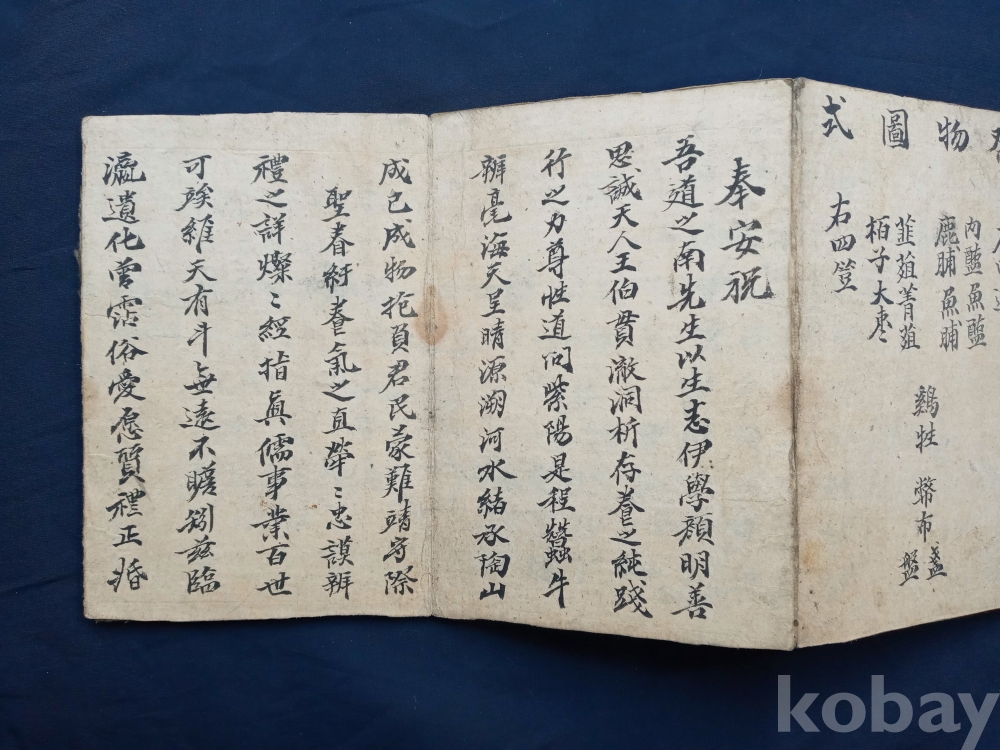 物圖式
肉醢魚醢
鹿脯魚脯
韭菹菁菹
栢子大棗
右四豆
鷄牲 幣布 盞
盤
奉安祝
吾道之南先生以生志伊學顔明善
思誠天人王伯貫澈洞析存養之純踐
行之力尊性道问紫陽是程蠶牛
辨毫海天呈晴源溯河水緒承陶山
成已成物抱負君民蒙難靖守際
聖春紆養氣之直犖〻忠謨辨
禮之詳燦〻經指眞儒事業百世
可竢維天有斗無遠不瞻矧玆臨
瀛遺化曾霑俗愛愿質禮正婚
kobay